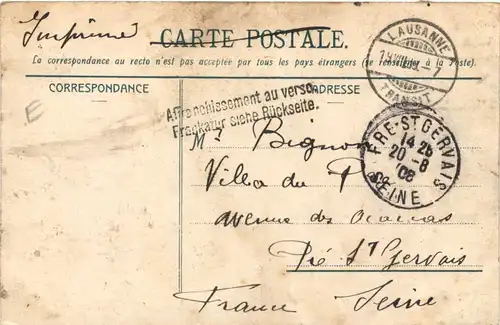 Imprimé
CARTE POSTALE.
La correspondance au recto n'est pas acceptée par tous les pays étrangers (se renseigner à la Poste).
LAUSANNE
TRANSIT
CORRESPONDANCE
ADRESSE
Affranchissement au verso.
Frankatur siehe Rückseite.
E
Mr Bignon
Villa du
avenue des
Pré St Gervais
France Seine
PRE-ST GERVAIS
14 25
20-8
08
SEINE